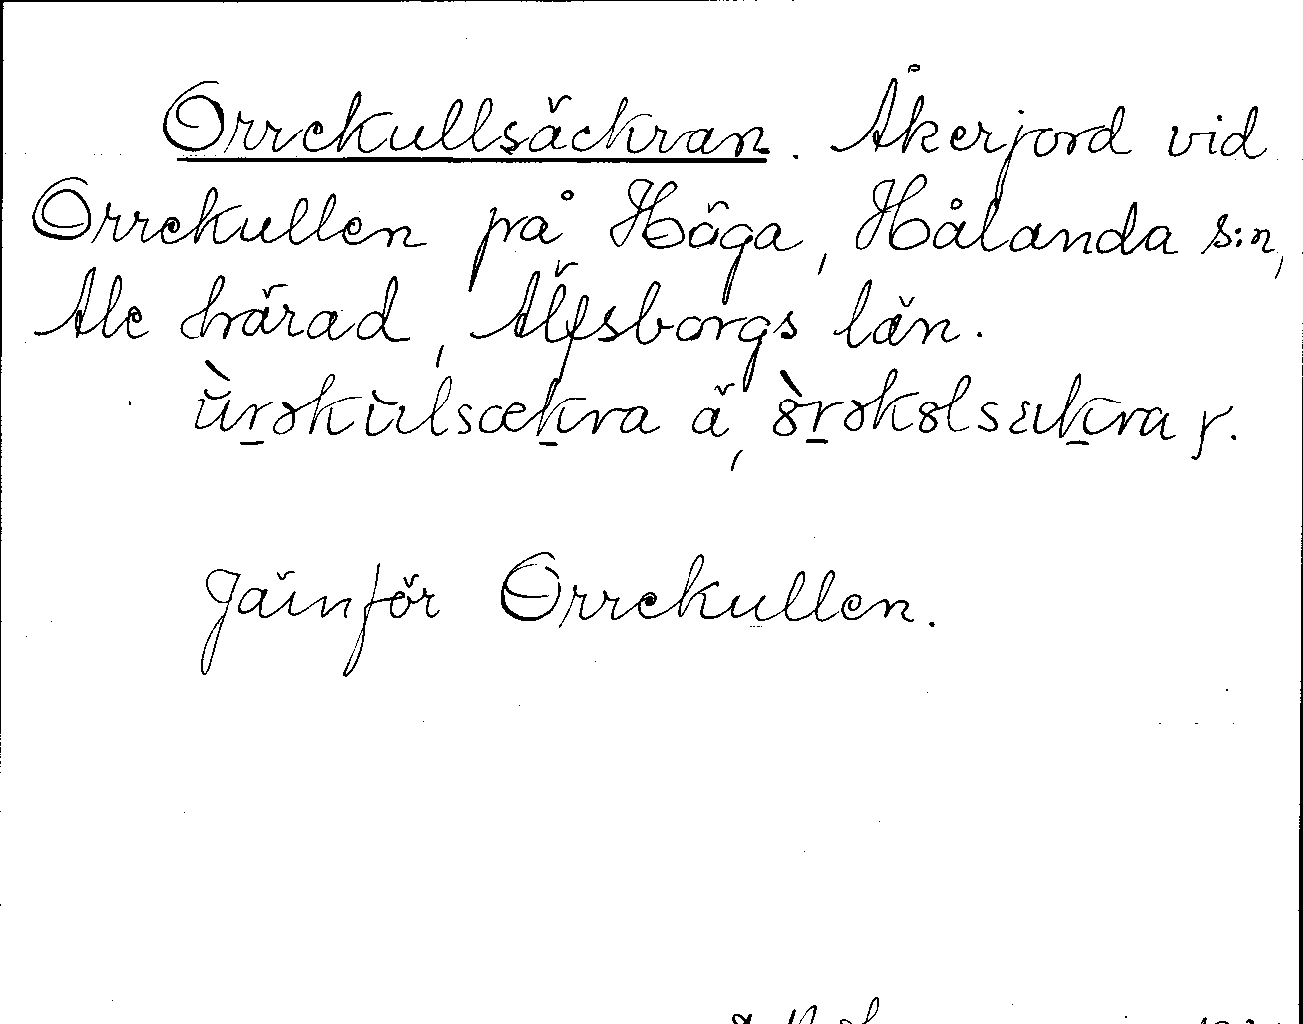 Orrekullsäckran. Åkerjord vid
Orrekullen på Höga, Hålanda s:n,
Ale härad, Älfsborgs län.
ùrəkùlsækra ä, òrəkolsækra y.
Jämför Orrekullen.